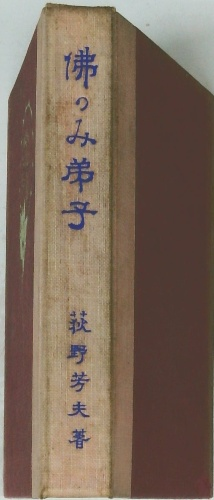 佛のみ弟子
荻野芳夫著